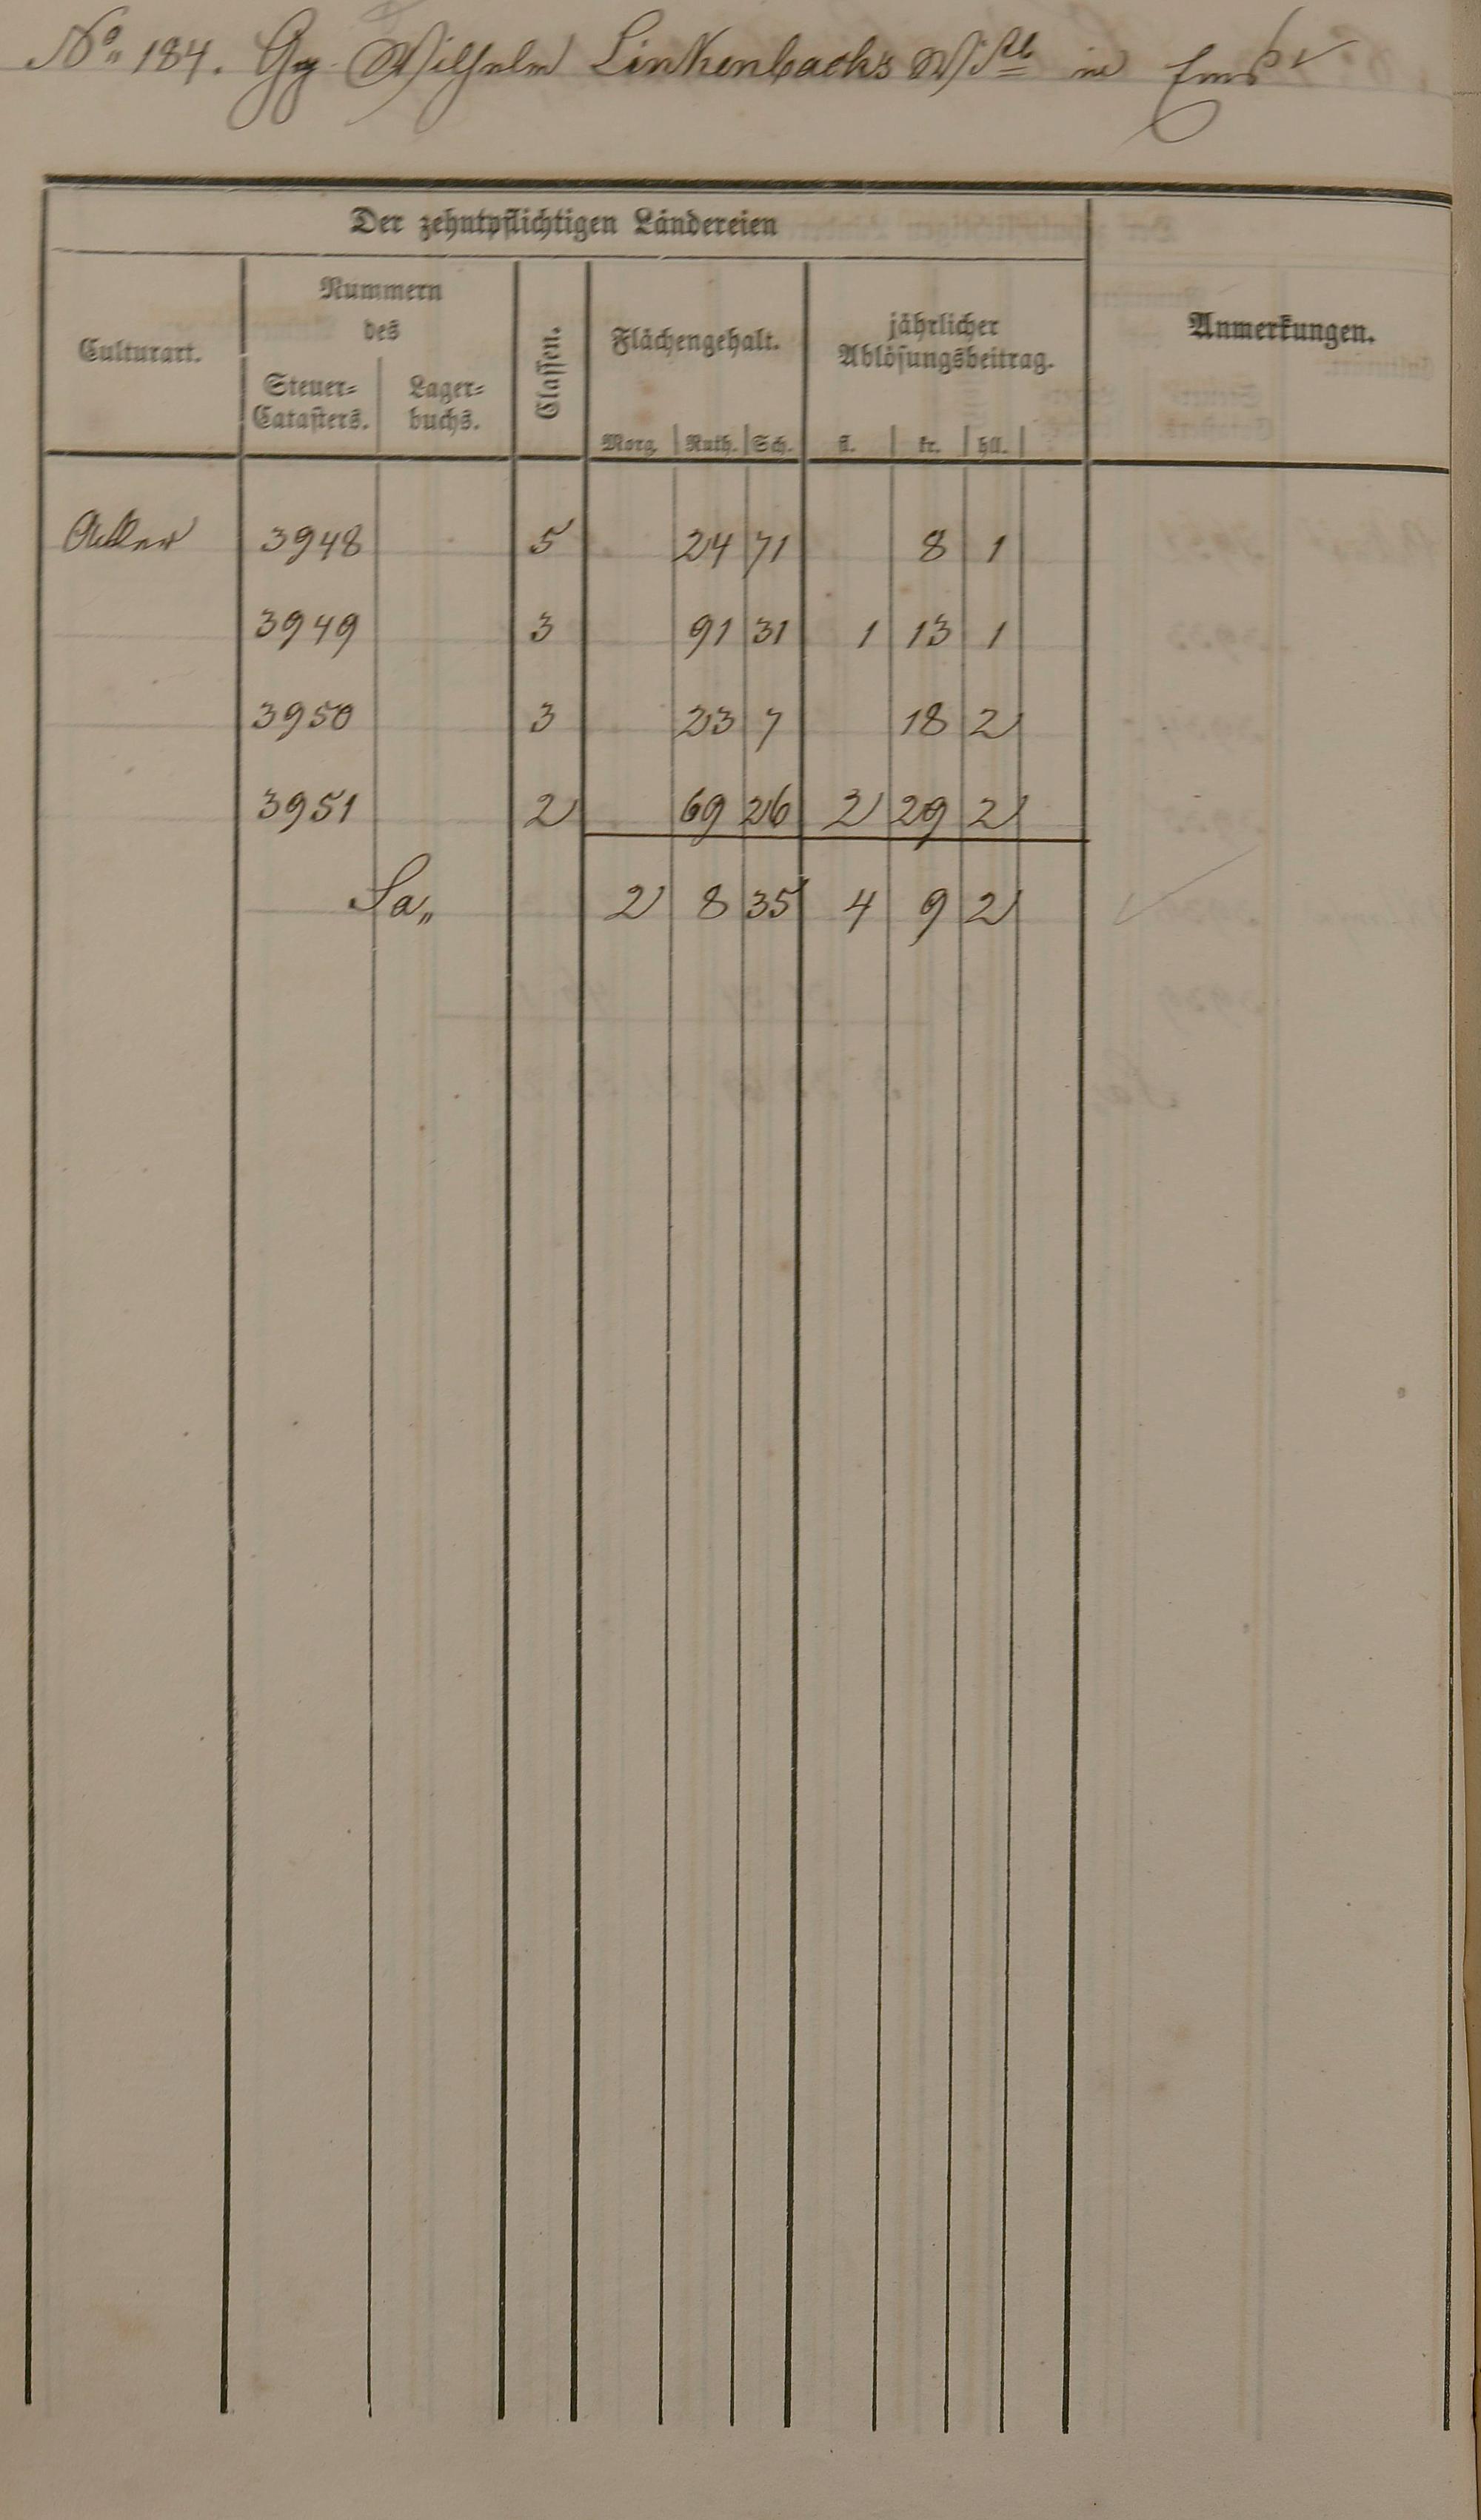 No. 184. Gg. Wilhelm Linkenbachs Wtb in Ems
Der zehntpflichtigen Ländereien
Culturart.
Nummern
des
Steuer=
Catasters.
Lager=
buchs.
Classen.
Flächengehalt.
Morg. Ruth. Sch.
jährlicher
Ablösungsbeitrag.
fl. kr. hll.
Anmerkungen.
Acker 3948 5 24 71 8 1
3949 3 91 31 1 13 1
3950 3 23 7 18 2
3951 2 69 26 2 29 2
Sa„ 2 8 35 4 9 2